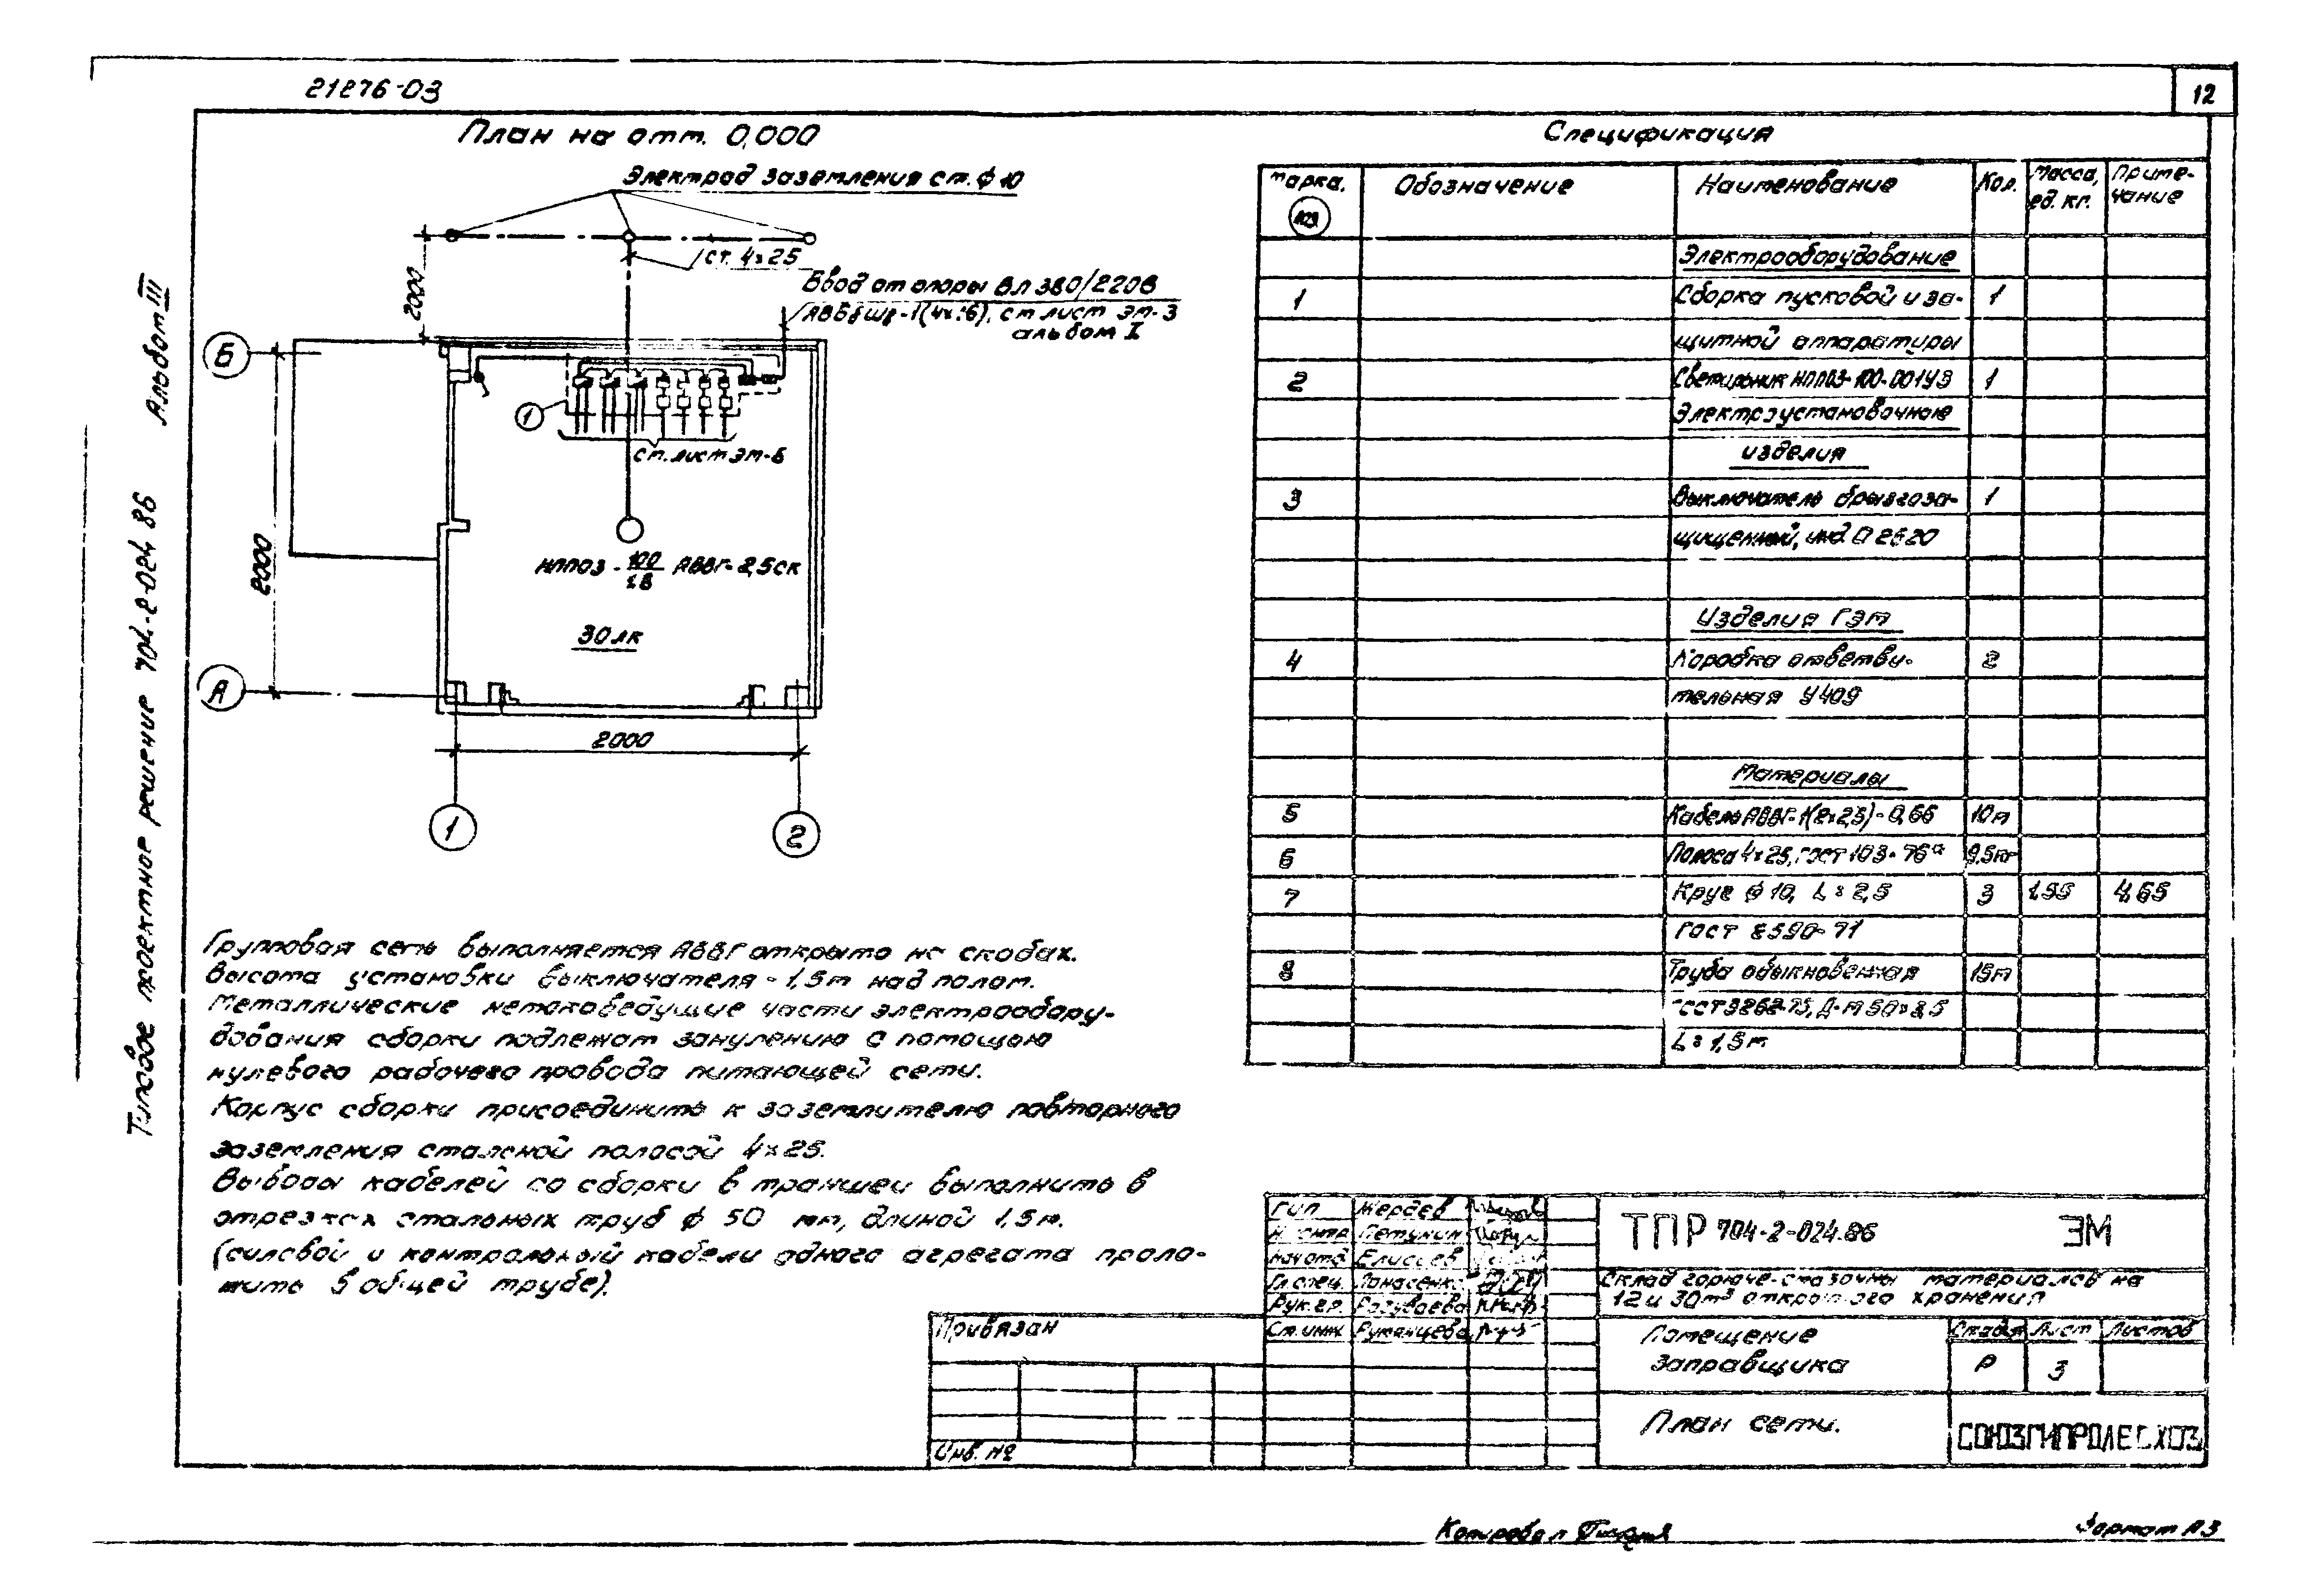 21876-03
12
План на отм. 0,000
Электрод заземления ст. ф 10
ст. 4×25
Ввод от опоры ВЛ 380/220В
см лист ЭМ-3
альбом I
2000
Б
1
см. лист ЭМ-6
2000
НПП03 - 100/1,8 АВВГ-2,5 ск
30 лк
А
2000
1
2
Альбом III
Типовое проектное решение 704-2-024.86
Групповая сеть выполняется АВВГ открыто на скобах.
Высота установки выключателя - 1,5м над полом.
Металлические нетоковедущие части электрообору-
дования сборки подлежат занулению с помощью
нулевого рабочего провода питающей сети.
Корпус сборки присоединить к заземлителю повторного
заземления стальной полосой 4×25.
Выводы кабелей со сборки в траншеи выполнить в
отрезках стальных труб ф 50 мм, длиной 1,5м.
(силовой и контрольный кабели одного агрегата проло-
жить в общей трубе).
Спецификация
Марка, поз Обозначение Наименование Кол. Масса, ед. кг. Приме-чание
Электрооборудование
1 Сборка пусковой и за- 1
щитной аппаратуры
2 Светильник НПП03-100-001У3 1
Электроустановочные
изделия
3 Выключатель брызгоза- 1
щищенный, инд 02620
Изделия ГЭМ
4 Коробка ответви- 2
тельная У409
Материалы
5 Кабель АВВГ-1(2×2,5)-0,66 10м
6 Полоса 4×25, ГОСТ 103-76* 9,5м
7 Круг ф 10, L = 2,5 3 1,55 4,65
ГОСТ 2590-71
8 Труба обыкновенная 15м
ГОСТ 3262-75, Д-М 50×3,5
L = 1,5м
ГИП Жердев
Н. контр Петунин
Нач отд Елисеев
Гл спец.
Рук. гр.
Ст. инж. Румянцева
ТПР 704-2-024.86 ЭМ
Склад горюче-смазочных материалов на
12 и 30м³ открытого хранения
Помещение
заправщика
Стадия Лист Листов
Р 3
План сети.
СОЮЗГИПРОЛЕСХОЗ
Привязан
Инв. №
Копировал
Формат А3